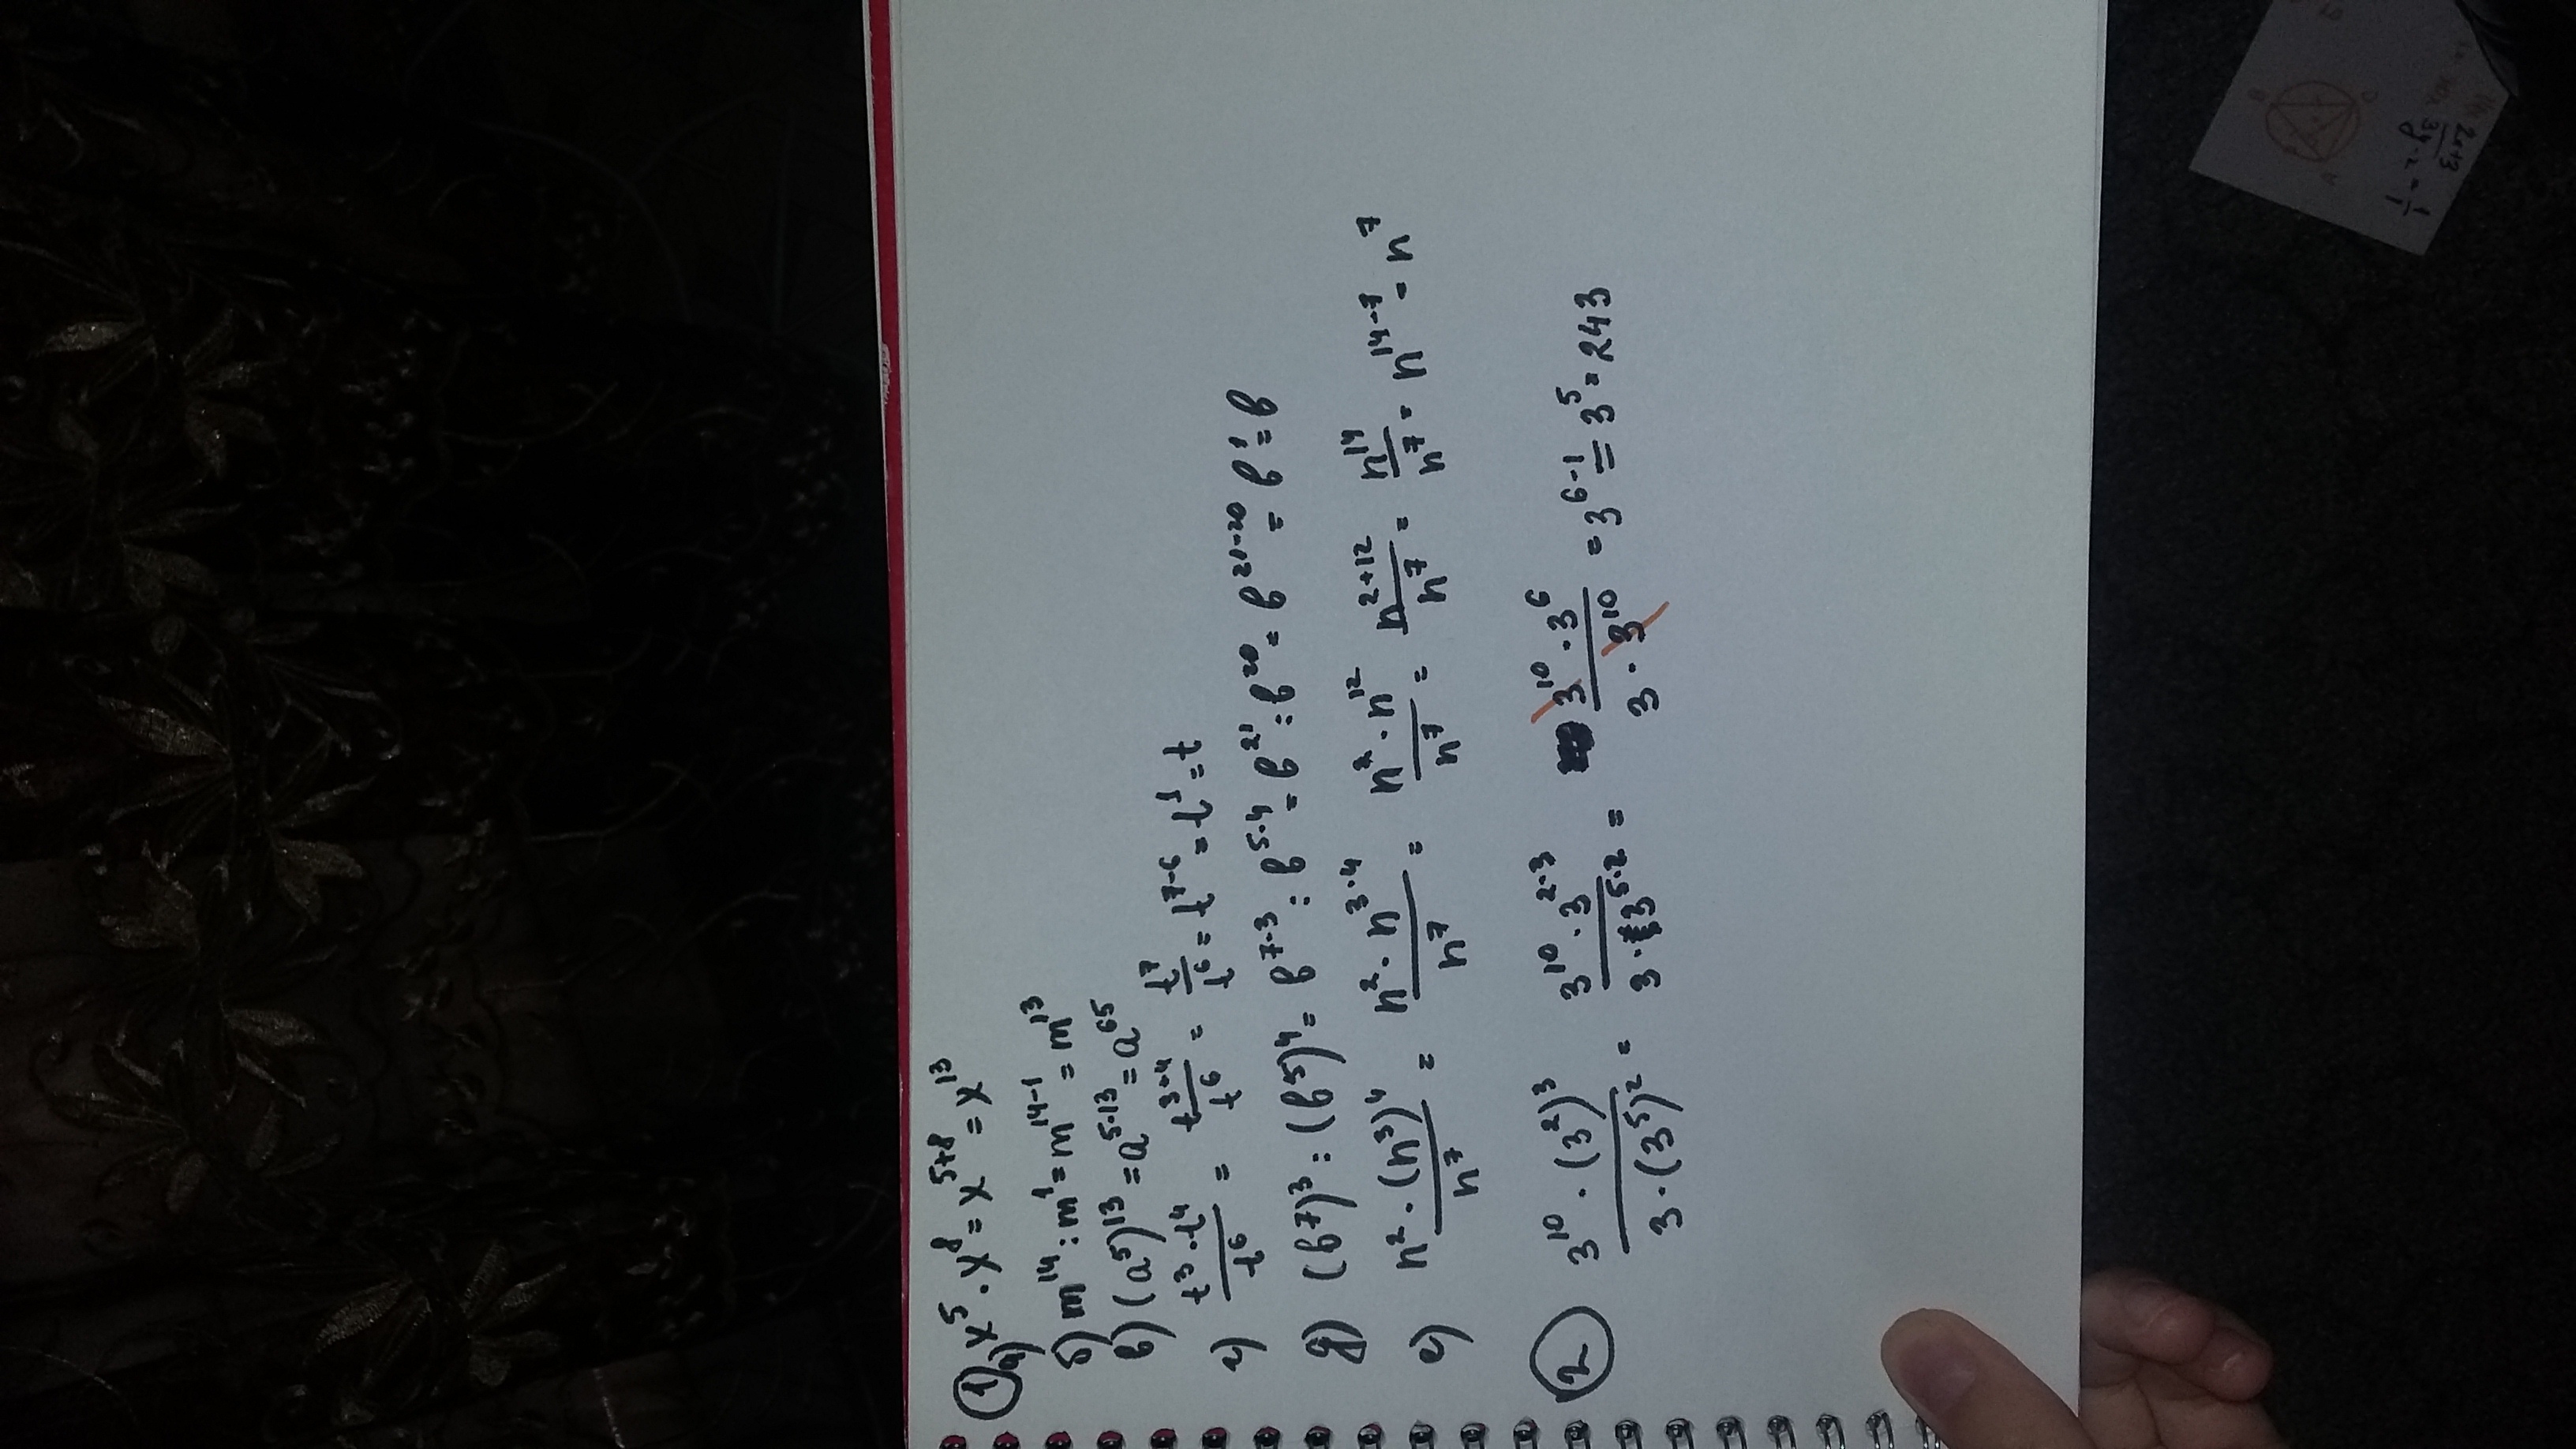 ① а) x⁵ · x⁸ = x⁵⁺⁸ = x¹³
б) m¹⁴ : m¹ = m¹⁴⁻¹ = m¹³
в) (a⁵)¹³ = a⁵·¹³ = a⁶⁵
г) t³·t⁴/t⁶ = t³⁺⁴/t⁶ = t⁷/t⁶ = t⁷⁻⁶ = t¹ = t
д) (b⁷)³ : (b⁵)⁴ = b⁷·³ : b⁵·⁴ = b²¹ : b²⁰ = b²¹⁻²⁰ = b¹ = b
е) n²·(n³)⁴/n⁷ = n²·n³·⁴/n⁷ = n²·n¹²/n⁷ = n²⁺¹²/n⁷ = n¹⁴/n⁷ = n¹⁴⁻⁷ = n⁷
② 3¹⁰·(3²)³/3·(3⁵)² = 3¹⁰·3²·³/3·3⁵·² = 3¹⁰·3⁶/3·3¹⁰ = 3⁶⁻¹ = 3⁵ = 243